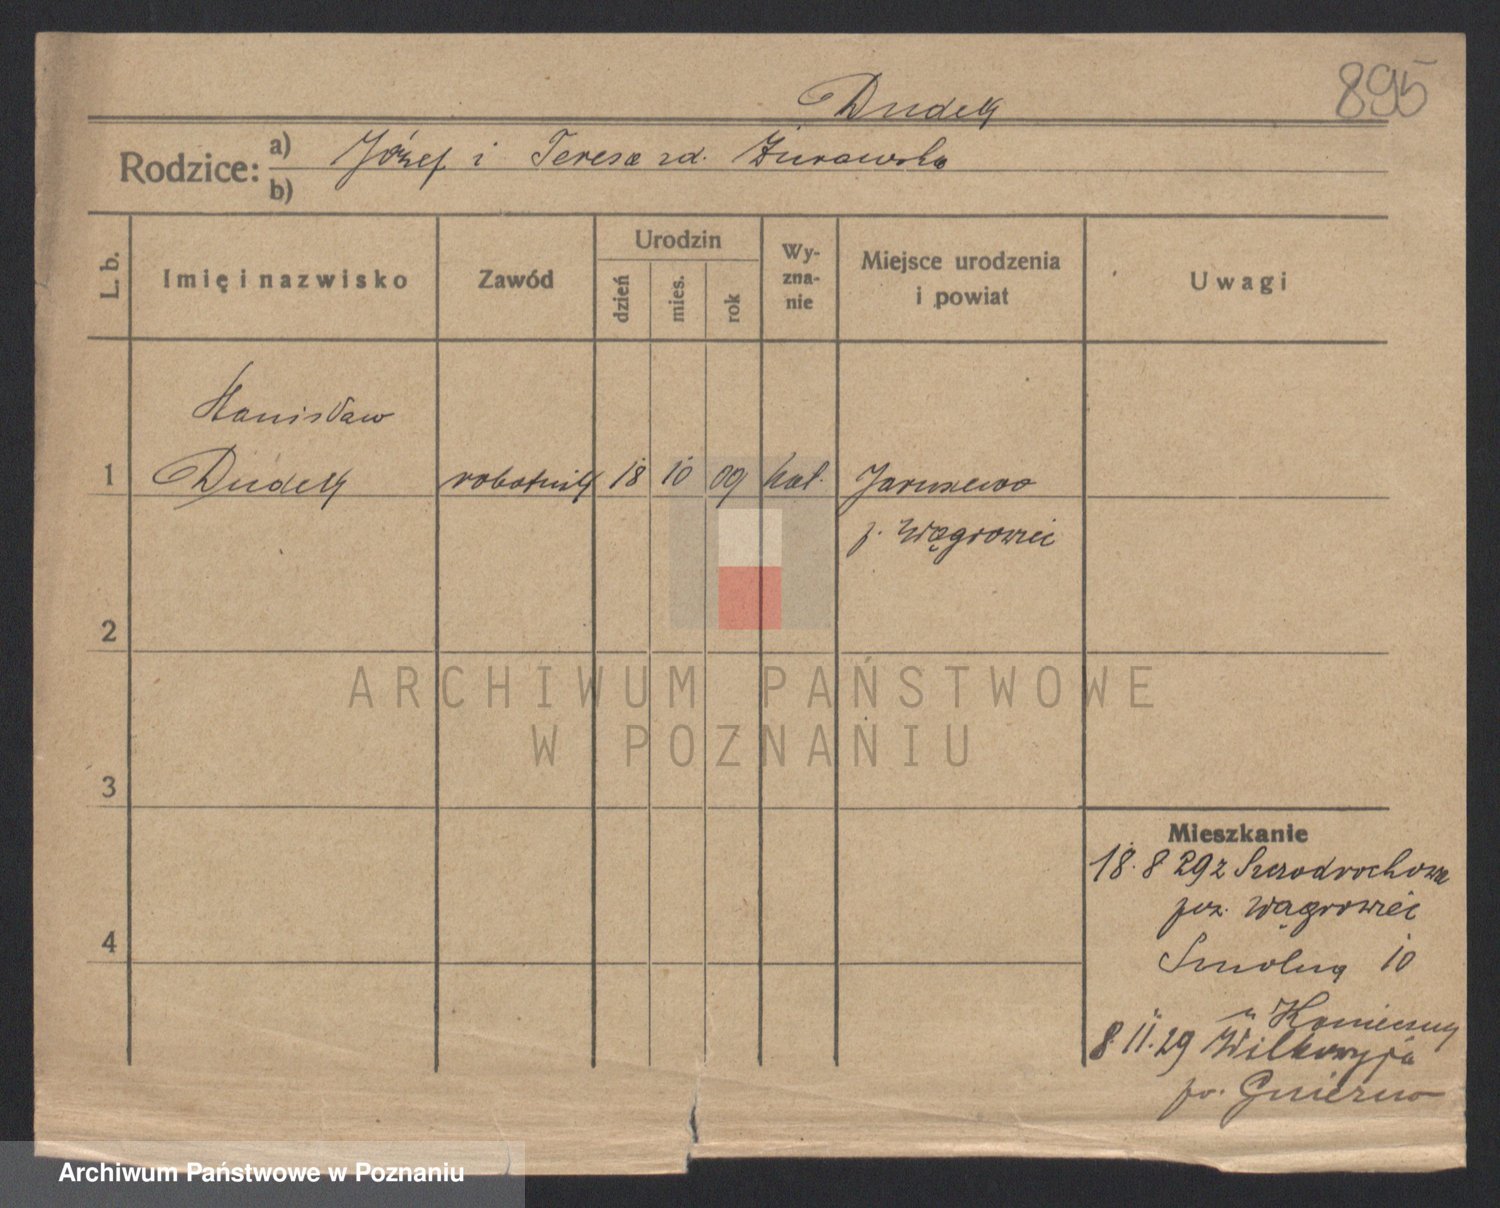 895
Dudek
Rodzice: a) Józef i Teresa zd. Żurawska
b)
L. b.
Imię i nazwisko
Zawód
Urodzin
dzień
mies.
rok
Wy-
zna-
nie
Miejsce urodzenia
i powiat
Uwagi
Stanisław
1 Dudek robotnik 18 10 09 kat. Jaruszewo
p. Wągrowiec
2
ARCHIWUM PAŃSTWOWE
W POZNANIU
3
Mieszkanie
18. 8 29 z
pow. Wągrowiec
4
10
u Konieczny
8 11. 29 Wilkowyja
pow. Gniezno
Archiwum Państwowe w Poznaniu